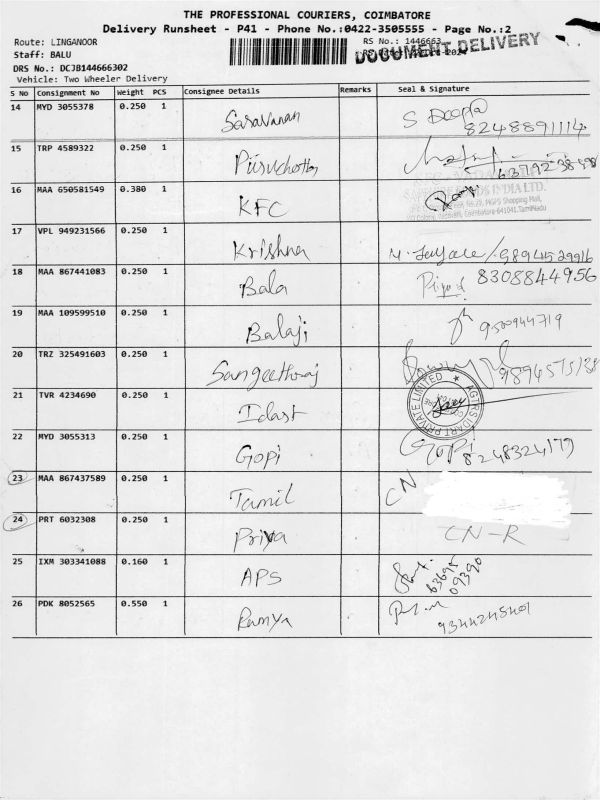 THE PROFESSIONAL COURIERS, COIMBATORE
Delivery Runsheet - P41 - Phone No.:0422-3505555 - Page No.:2
Route: LINGANOOR
RS No.: 1446663
DOCUMENT DELIVERY
Staff: BALU
DRS No.: DCJB144666302
Vehicle: Two Wheeler Delivery
S No Consignment No Weight PCS Consignee Details Remarks Seal & Signature
14 MYD 3055378 0.250 1 Saravanan S Deepa
8248891114
15 TRP 4589322 0.250 1
16 MAA 650581549 0.380 1 KFC
17 VPL 949231566 0.250 1 Krishna
18 MAA 867441083 0.250 1 Bala 8308844956
19 MAA 109599510 0.250 1 Balaji 9500944719
20 TRZ 325491603 0.250 1 Sangeethraj
21 TVR 4234690 0.250 1
22 MYD 3055313 0.250 1 Gopi Gopi
8248324179
23 MAA 867437589 0.250 1 Tamil CN
24 PRT 6032308 0.250 1 Priya CN-R
25 IXM 303341088 0.160 1 APS 63695
09390
26 PDK 8052565 0.550 1 Ramya
9344245401